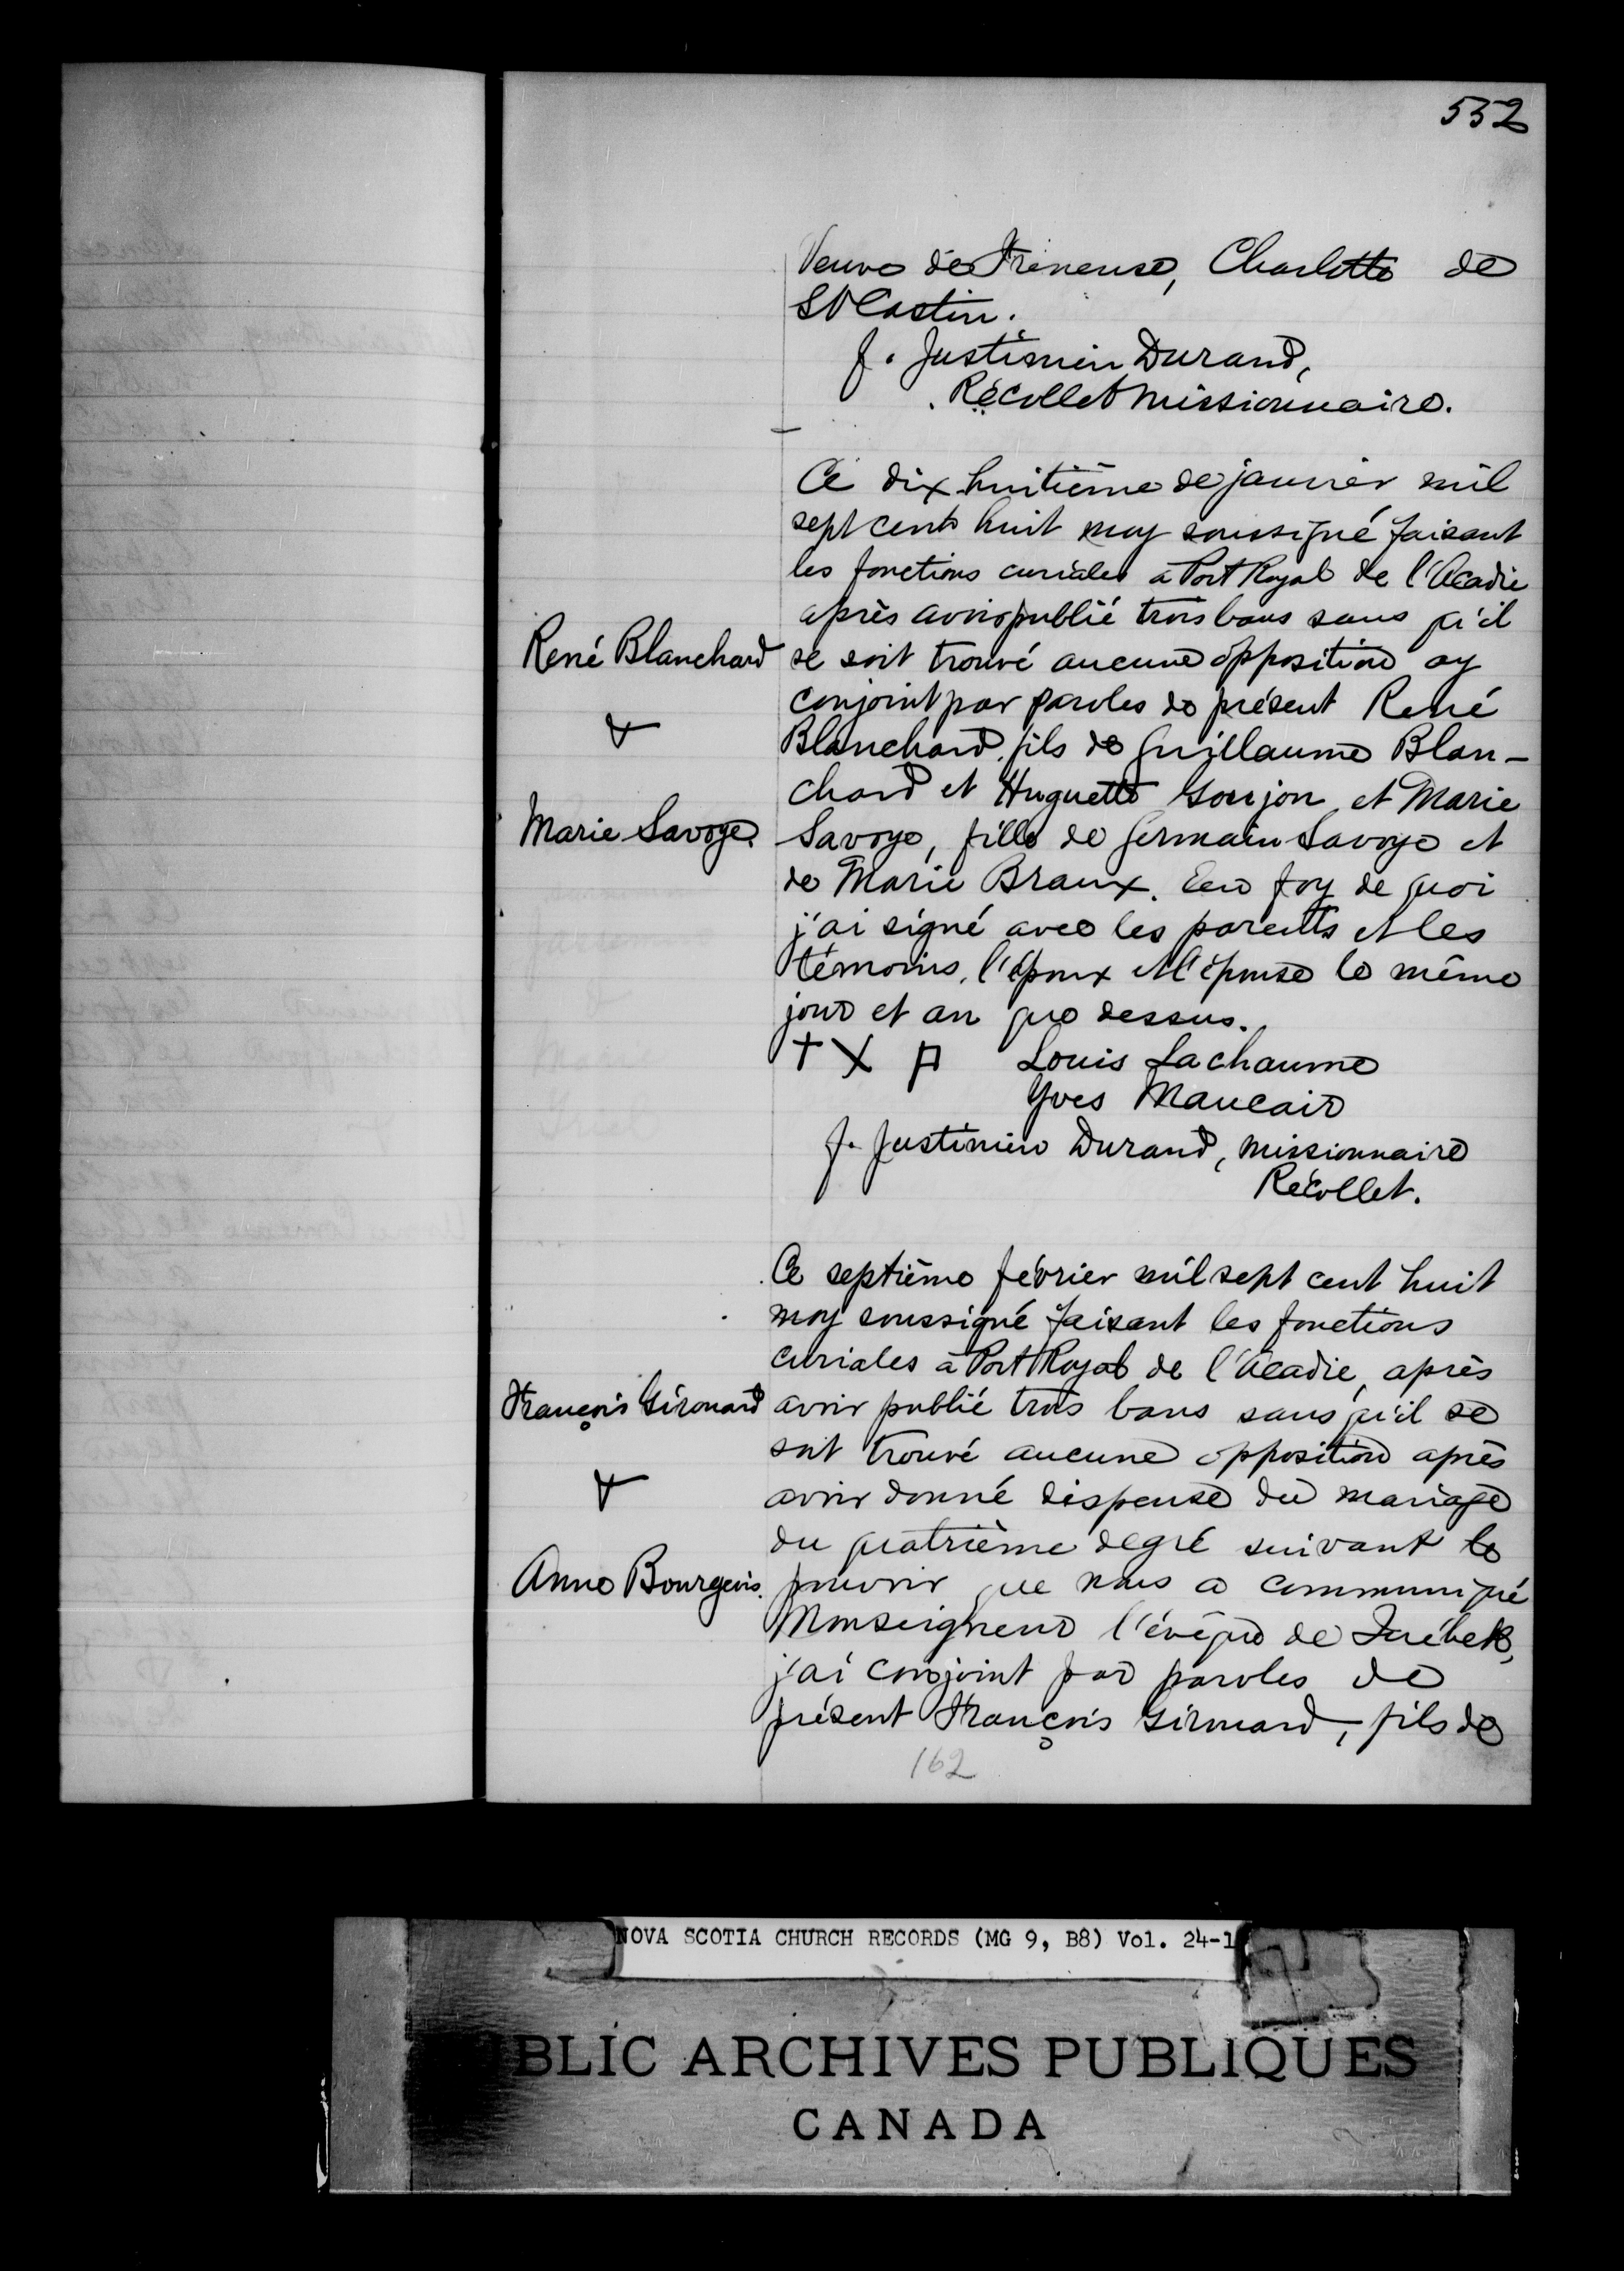 532
Veuve de Freneuse, Charlotte de
St Castin.
f. Justinien Durand,
Récollet missionnaire.
Ce dix huitième de janvier mil
sept cent huit moy soussigné faisant
les fonctions curiales à Port Royal de l'Acadie
après avoir publié trois bans sans qu'il
René Blanchard se soit trouvé aucune opposition ay
conjoint par paroles de présent René
& Blanchard, fils de Guillaume Blan-
chard et Huguette Goujon, et Marie
Marie Savoye. Savoye, fille de Germain Savoye et
de Marie Braux. En foy de quoi
j'ai signé avec les parents et les
témoins, l'époux et l'épouse le même
jour et an que dessus.
+ X Louis Lachaume
Yves Maucair
f. Justinien Durand, missionnaire
Récollet.
Ce septième février mil sept cent huit
moy soussigné faisant les fonctions
curiales à Port Royal de l'Acadie, après
François Girouard avoir publié trois bans sans qu'il se
soit trouvé aucune opposition après
& avoir donné dispense du mariage
du quatrième degré suivant le
Anne Bourgeois. pouvoir que nous a communiqué
Monseigneur l'évêque de Québek,
j'ai conjoint par paroles de
présent François Girouard, fils de
162
NOVA SCOTIA CHURCH RECORDS (MG 9, B8) Vol. 24-1
BLIC ARCHIVES PUBLIQUES
CANADA